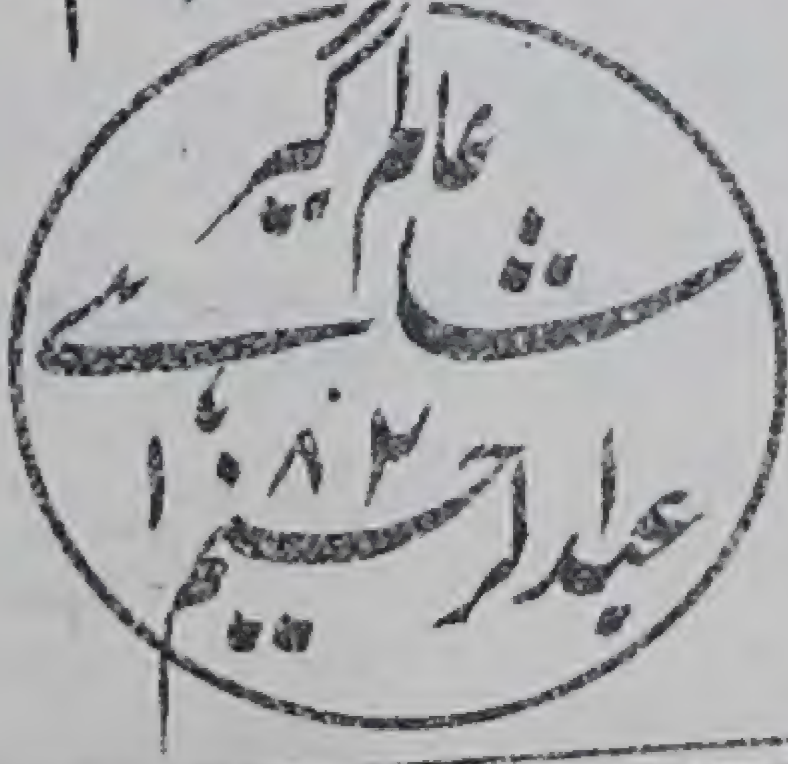 عالم گیر
شاہے
۱۰۸۳
عبدالرحیم